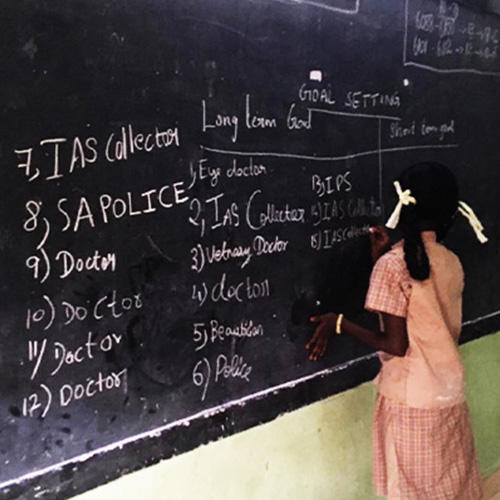 GOAL SETTING
Long term Goal
Short term goal
1) Eye doctor
2) IAS Collecter
3) Vetnary Doctor
4) doctor
5) Beautitian
6) Police
7) IAS Collector
8) SA POLICE
9) Doctor
10) Doctor
11) Doctor
12) Doctor
13) IPS
14) IAS Collector
15) IAS Collector